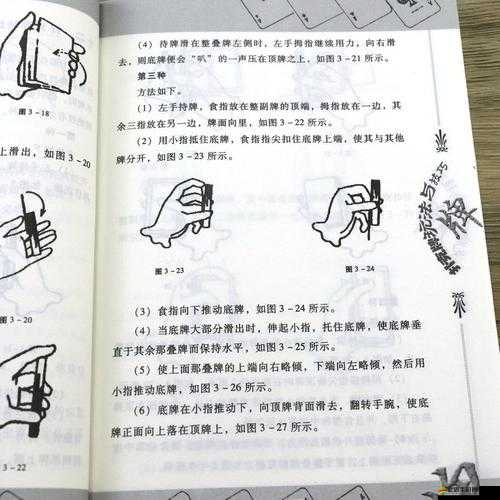 图 3-18
上滑出，如图 3-20
图 3-20
3-22
（4）待牌滑在整叠牌左侧时，左手拇指继续用力，向右滑
去，则底牌便会“叭”的一声压在顶牌之上，如图 3-21 所示。
第三种
方法如下。
（1）左手持牌，食指放在整副牌的顶端，拇指放在一边，其
余三指放在另一边，牌面向里，如图 3-22 所示。
（2）用小指抵住底牌，食指指尖扣住底牌上端，使其与其他
牌分开，如图 3-23 所示。
图 3-23
图 3-24
（3）食指向下推动底牌，如图 3-24 所示。
（4）当底牌大部分滑出时，伸起小指，托住底牌，使底牌垂
直于其余那叠牌而保持水平，如图 3-25 所示。
（5）使上面那叠牌的上端向右略倾，下端向左略倾，然后用
小指推动底牌，如图 3-26 所示。
（6）底牌在小指推动下，向顶牌背面滑去，翻转手腕，使底
牌正面向上落在顶牌上，如图 3-27 所示。
扑克牌玩法与技巧